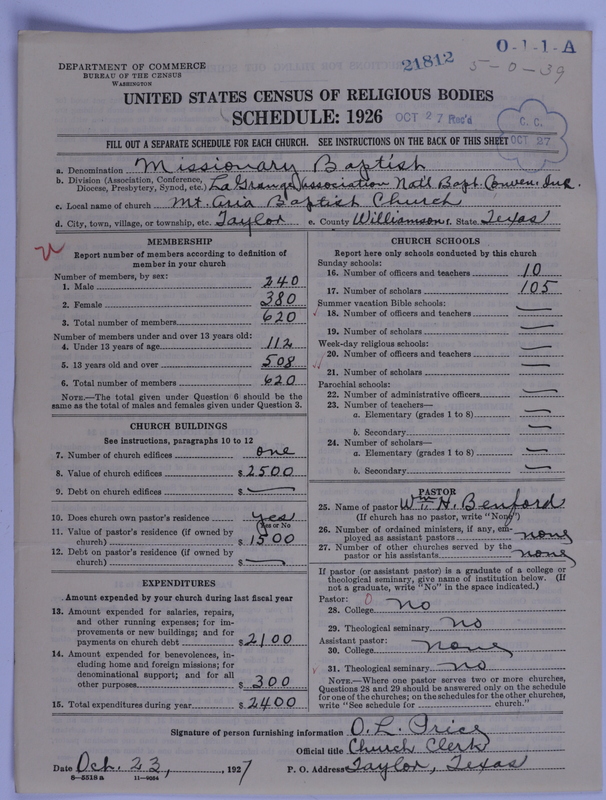 O-1-1-A
21812
5-0-39
DEPARTMENT OF COMMERCE
BUREAU OF THE CENSUS
WASHINGTON
UNITED STATES CENSUS OF RELIGIOUS BODIES
SCHEDULE: 1926
OCT 27 Rec'd
C. C.
OCT 27
FILL OUT A SEPARATE SCHEDULE FOR EACH CHURCH. SEE INSTRUCTIONS ON THE BACK OF THIS SHEET
a. Denomination Missionary Baptish
b. Division (Association, Conference, Diocese, Presbytery, Synod, etc.) La Grange Association Nat'l Bapt. Conven. Ink.
c. Local name of church Mt. Aria Baptish Church
d. City, town, village, or township, etc. Taylor e. County Williamson f. State Texas
MEMBERSHIP
Report number of members according to definition of
member in your church
Number of members, by sex:
1. Male 240
2. Female 380
3. Total number of members 620
Number of members under and over 13 years old:
4. Under 13 years of age 112
5. 13 years old and over 508
6. Total number of members 620
NOTE.—The total given under Question 6 should be
same as the total of males and females given under Question 3.
CHURCH BUILDINGS
See instructions, paragraphs 10 to 12
7. Number of church edifices one
8. Value of church edifices $ 2500
9. Debt on church edifices $ —
10. Does church own pastor's residence yes
(Yes or No)
11. Value of pastor's residence (if owned by
church) $ 1500
12. Debt on pastor's residence (if owned by
church) $ —
EXPENDITURES
Amount expended by your church during last fiscal year
13. Amount expended for salaries, repairs,
and other running expenses; for im-
provements or new buildings; and for
payments on church debt $ 2100
14. Amount expended for benevolences, in-
cluding home and foreign missions; for
denominational support; and for all
other purposes $ 300
15. Total expenditures during year $ 2400
CHURCH SCHOOLS
Report here only schools conducted by this church
Sunday schools:
16. Number of officers and teachers 10
17. Number of scholars 105
Summer vacation Bible schools:
18. Number of officers and teachers —
19. Number of scholars —
Week-day religious schools:
20. Number of officers and teachers —
21. Number of scholars —
Parochial schools:
22. Number of administrative officers —
23. Number of teachers—
a. Elementary (grades 1 to 8) —
b. Secondary —
24. Number of scholars—
a. Elementary (grades 1 to 8) —
b. Secondary —
PASTOR
25. Name of pastor Wm. H. Benford
(If church has no pastor, write "None")
26. Number of ordained ministers, if any, em-
ployed as assistant pastors none
27. Number of other churches served by the
pastor or his assistants none
If pastor (or assistant pastor) is a graduate of a college or
theological seminary, give name of institution below. (If
not a graduate, write "No" in the space indicated.)
Pastor: 0
28. College no
29. Theological seminary no
Assistant pastor:
30. College none
31. Theological seminary no
NOTE.—Where one pastor serves two or more churches,
Questions 28 and 29 should be answered only on the schedule
for one of the churches; on the schedules for the other churches,
write "See schedule for church."
Signature of person furnishing information O. L. Price
Official title Church Clerk
Date Och. 23, , 1927 P. O. Address Taylor, Texas
8—5518 a 11—9064